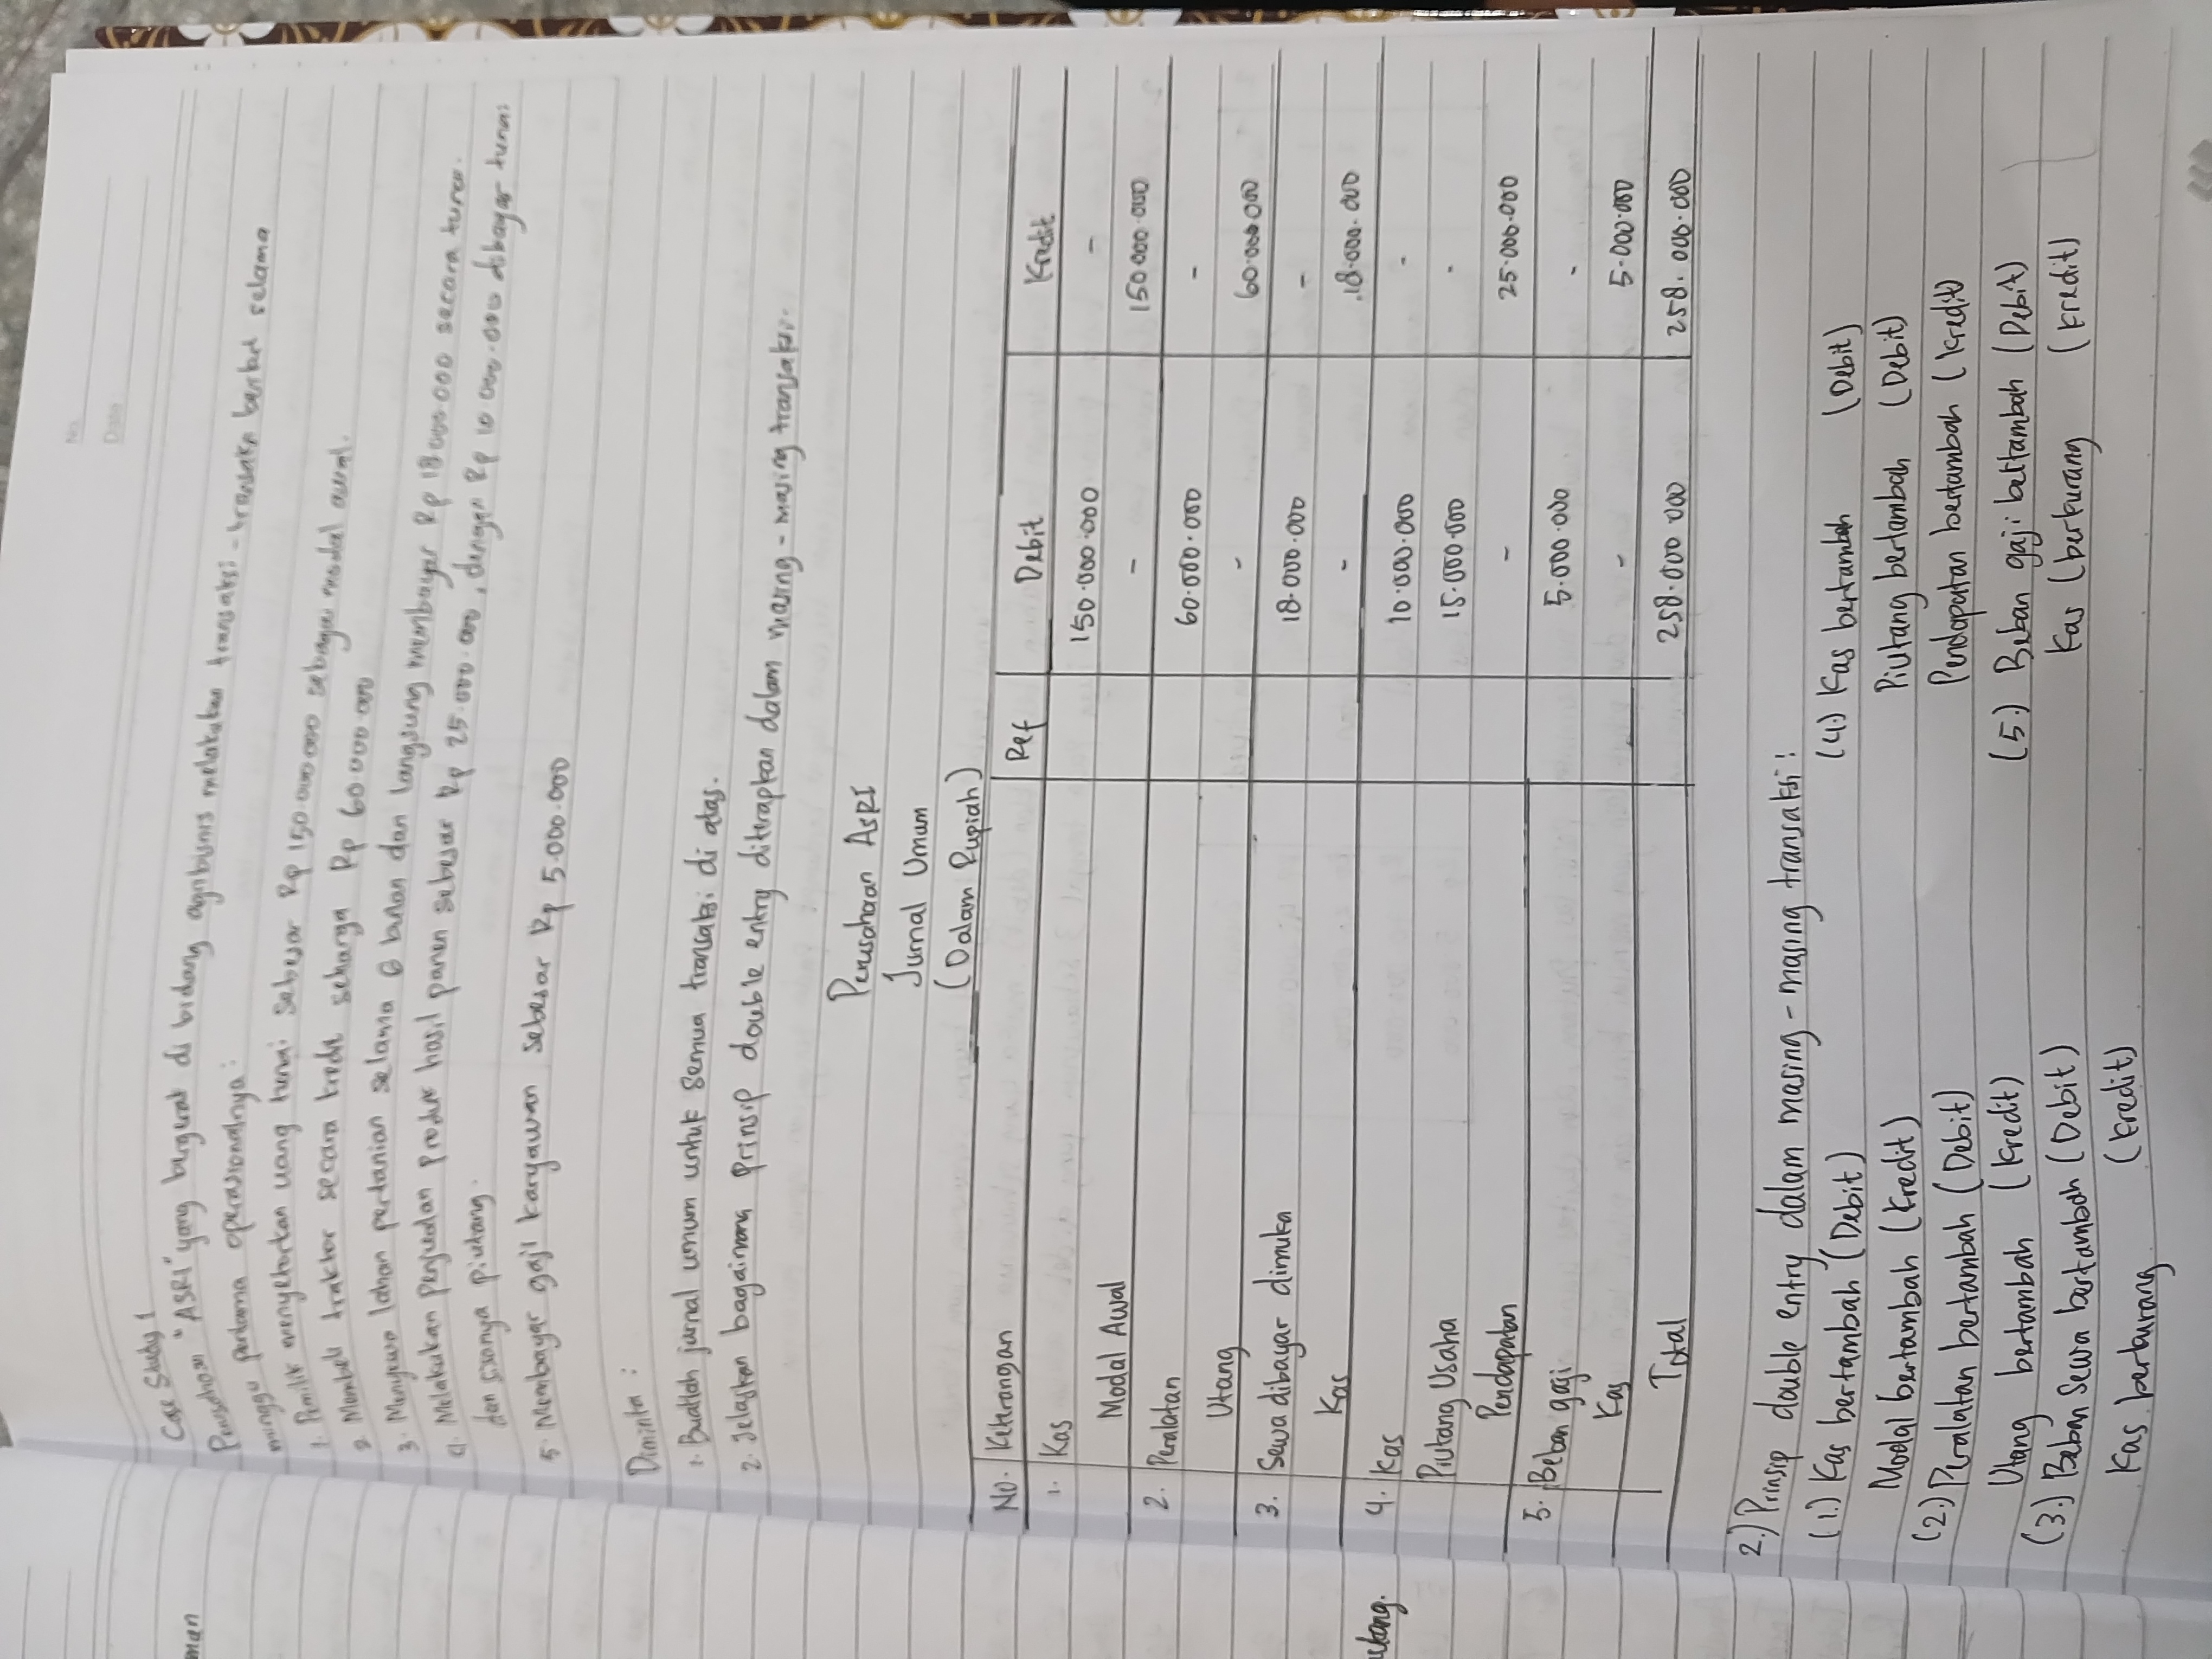 No.
Date
Case Study 1
Perusahaan "ASRI" yang bergerak di bidang agribisnis melakukan transaksi-transaksi berikut selama
minggu pertama operasionalnya:
1. Pemilik menyetorkan uang tunai sebesar Rp 150.000.000 sebagai modal awal.
2. Membeli traktor secara kredit seharga Rp 60.000.000
3. Menyewa lahan pertanian selama 6 bulan dan langsung membayar Rp 18.000.000 secara tunai.
4. Melakukan penjualan produk hasil panen sebesar Rp 25.000.000, dengan Rp 10.000.000 dibayar tunai
dan sisanya piutang.
5. Membayar gaji karyawan sebesar Rp 5.000.000
Diminta :
1. Buatlah jurnal umum untuk semua transaksi di atas.
2. Jelaskan bagaimana prinsip double entry diterapkan dalam masing-masing transaksi.
Perusahaan ASRI
Jurnal Umum
(Dalam Rupiah)
No. Keterangan Ref Debit Kredit
1. Kas 150.000.000 -
Modal Awal - 150.000.000
2. Peralatan 60.000.000 -
Utang - 60.000.000
3. Sewa dibayar dimuka 18.000.000 -
Kas - 18.000.000
4. Kas 10.000.000 -
Piutang Usaha 15.000.000 -
Pendapatan - 25.000.000
5. Beban gaji 5.000.000 -
Kas - 5.000.000
Total 258.000.000 258.000.000
2.) Prinsip double entry dalam masing-masing transaksi:
(1.) Kas bertambah (Debit)
Modal bertambah (Kredit)
(2.) Peralatan bertambah (Debit)
Utang bertambah (Kredit)
(3.) Beban Sewa bertambah (Debit)
Kas berkurang (Kredit)
(4.) Kas bertambah (Debit)
Piutang bertambah (Debit)
Pendapatan bertambah (Kredit)
(5.) Beban gaji bertambah (Debit)
Kas (berkurang (Kredit)